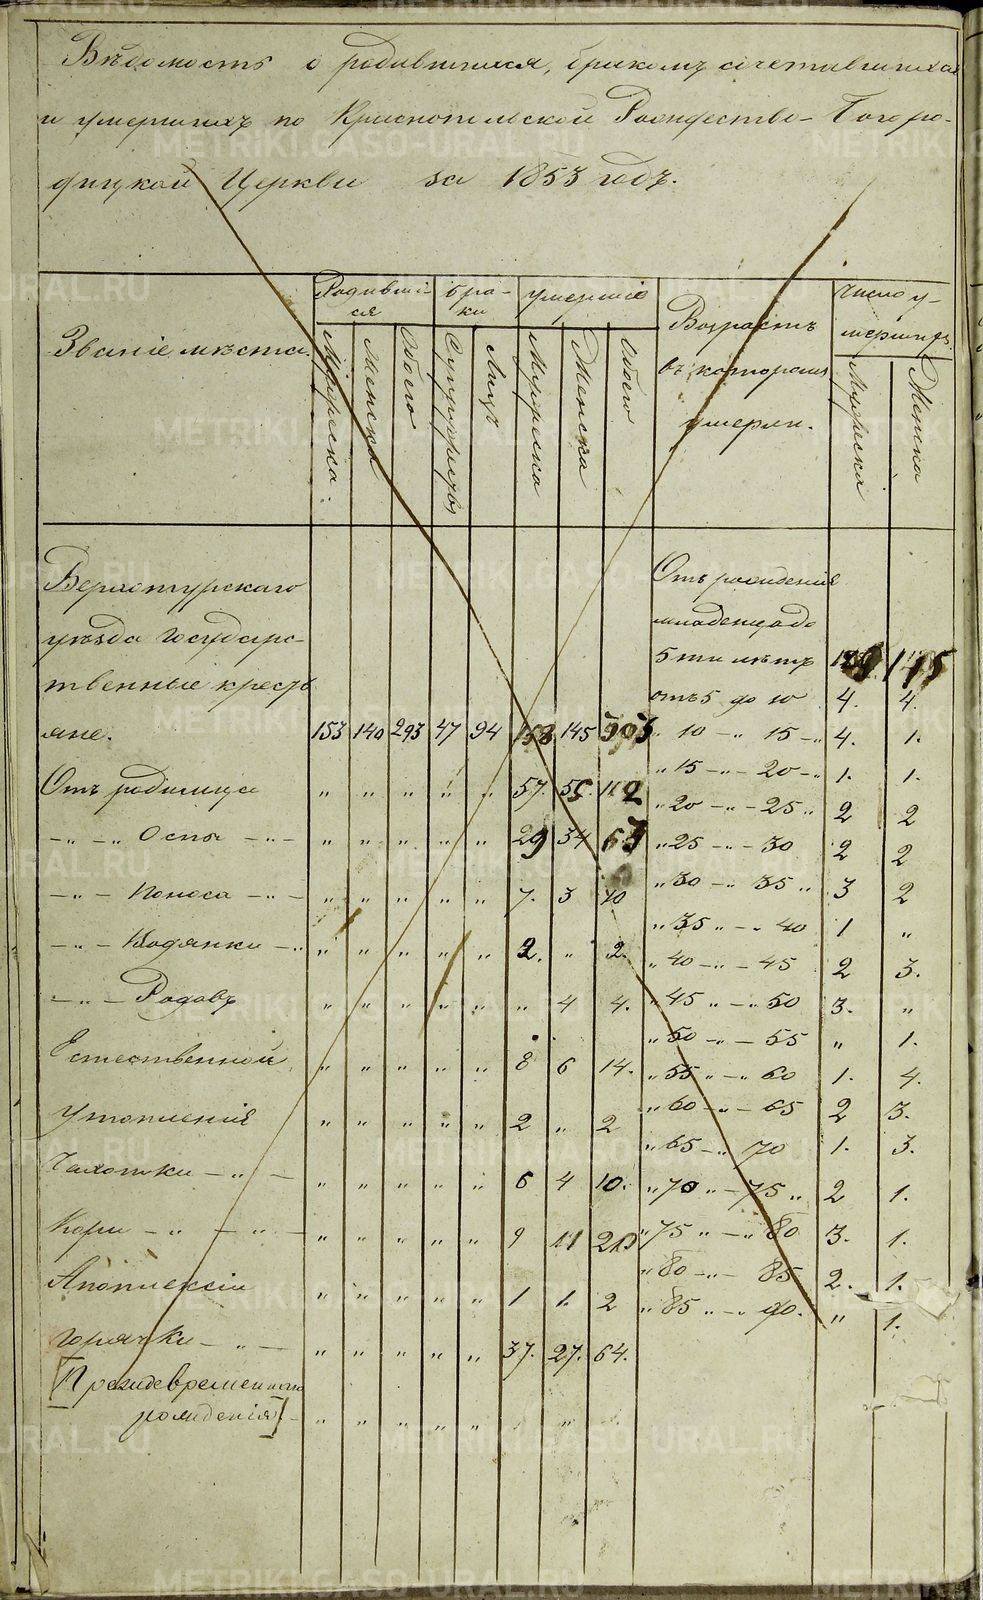 Ведомость о родившихся, бракомъ сочетавшихся
и умершихъ по Краснопольской Рождество-Богоро-
дицкой Церкви за 1853 годъ.
Званіе места.
Родивші
ся
бра-
ки
умершіе
Возрастъ
въ которомъ
умерли.
Число у-
мершихъ
Мужеска
Женска
Обоего
Супружествъ
Лицъ
Мужеска
Женска
Обоего
Мужеска
Женска
Верхотурскаго
уезда Государс-
твенные кресть
яне. 153 140 293 47 94 158 145 303
Отъ родимца „ „ „ „ „ 57. 55 112
-„-„ Оспы -„- „ „ „ „ „ 29 34 63
-„- Поноса -„- „ „ „ „ „ 7. 3 10
-„- Водянки -„ „ „ „ „ „ 2. „ 2.
-„- Родовъ „ „ „ „ „ „ 4 4.
Естественной „ „ „ „ „ 8 6 14.
Утопленія „ „ „ „ „ 2 „ 2
Чахотки -„- „ „ „ „ „ 6 4 10.
Кори -„-„- „ „ „ „ „ 9 11 20
Апоплексіи „ „ „ „ „ 1 1. 2
горячки -„- „ „ „ „ „ 37. 27. 64.
[Преждевременнаго
рожденія] - „ „ „ „ „ „
Отъ рожденія
младенца до
5ти летъ 115
отъ 5 до 10 4. 4.
„ 10 -„ 15 -„ 4. 1.
„ 15 -„- 20 -„ 1. 1.
„ 20 -„- 25 „ 2 2
„ 25 -„- 30 2 2
„ 30 -„- 35 „ 3 2
„ 35 „-„ 40 1 „
„ 40 -„- 45 2 3.
„ 45 „-„ 50 3. „
„ 50 -„- 55 „ 1.
„ 55 „-„ 60 1. 4.
„ 60 -„- 65 2 3.
„ 65 -„ 70 1. 3.
„ 70 „- 75 „ 2 1.
„ 75 „-„ 80 3. 1.
„ 80 -„- 85 2. 1.
„ 85 „-„ 90. „ 1.
METRIKI.GASO-URAL.RU